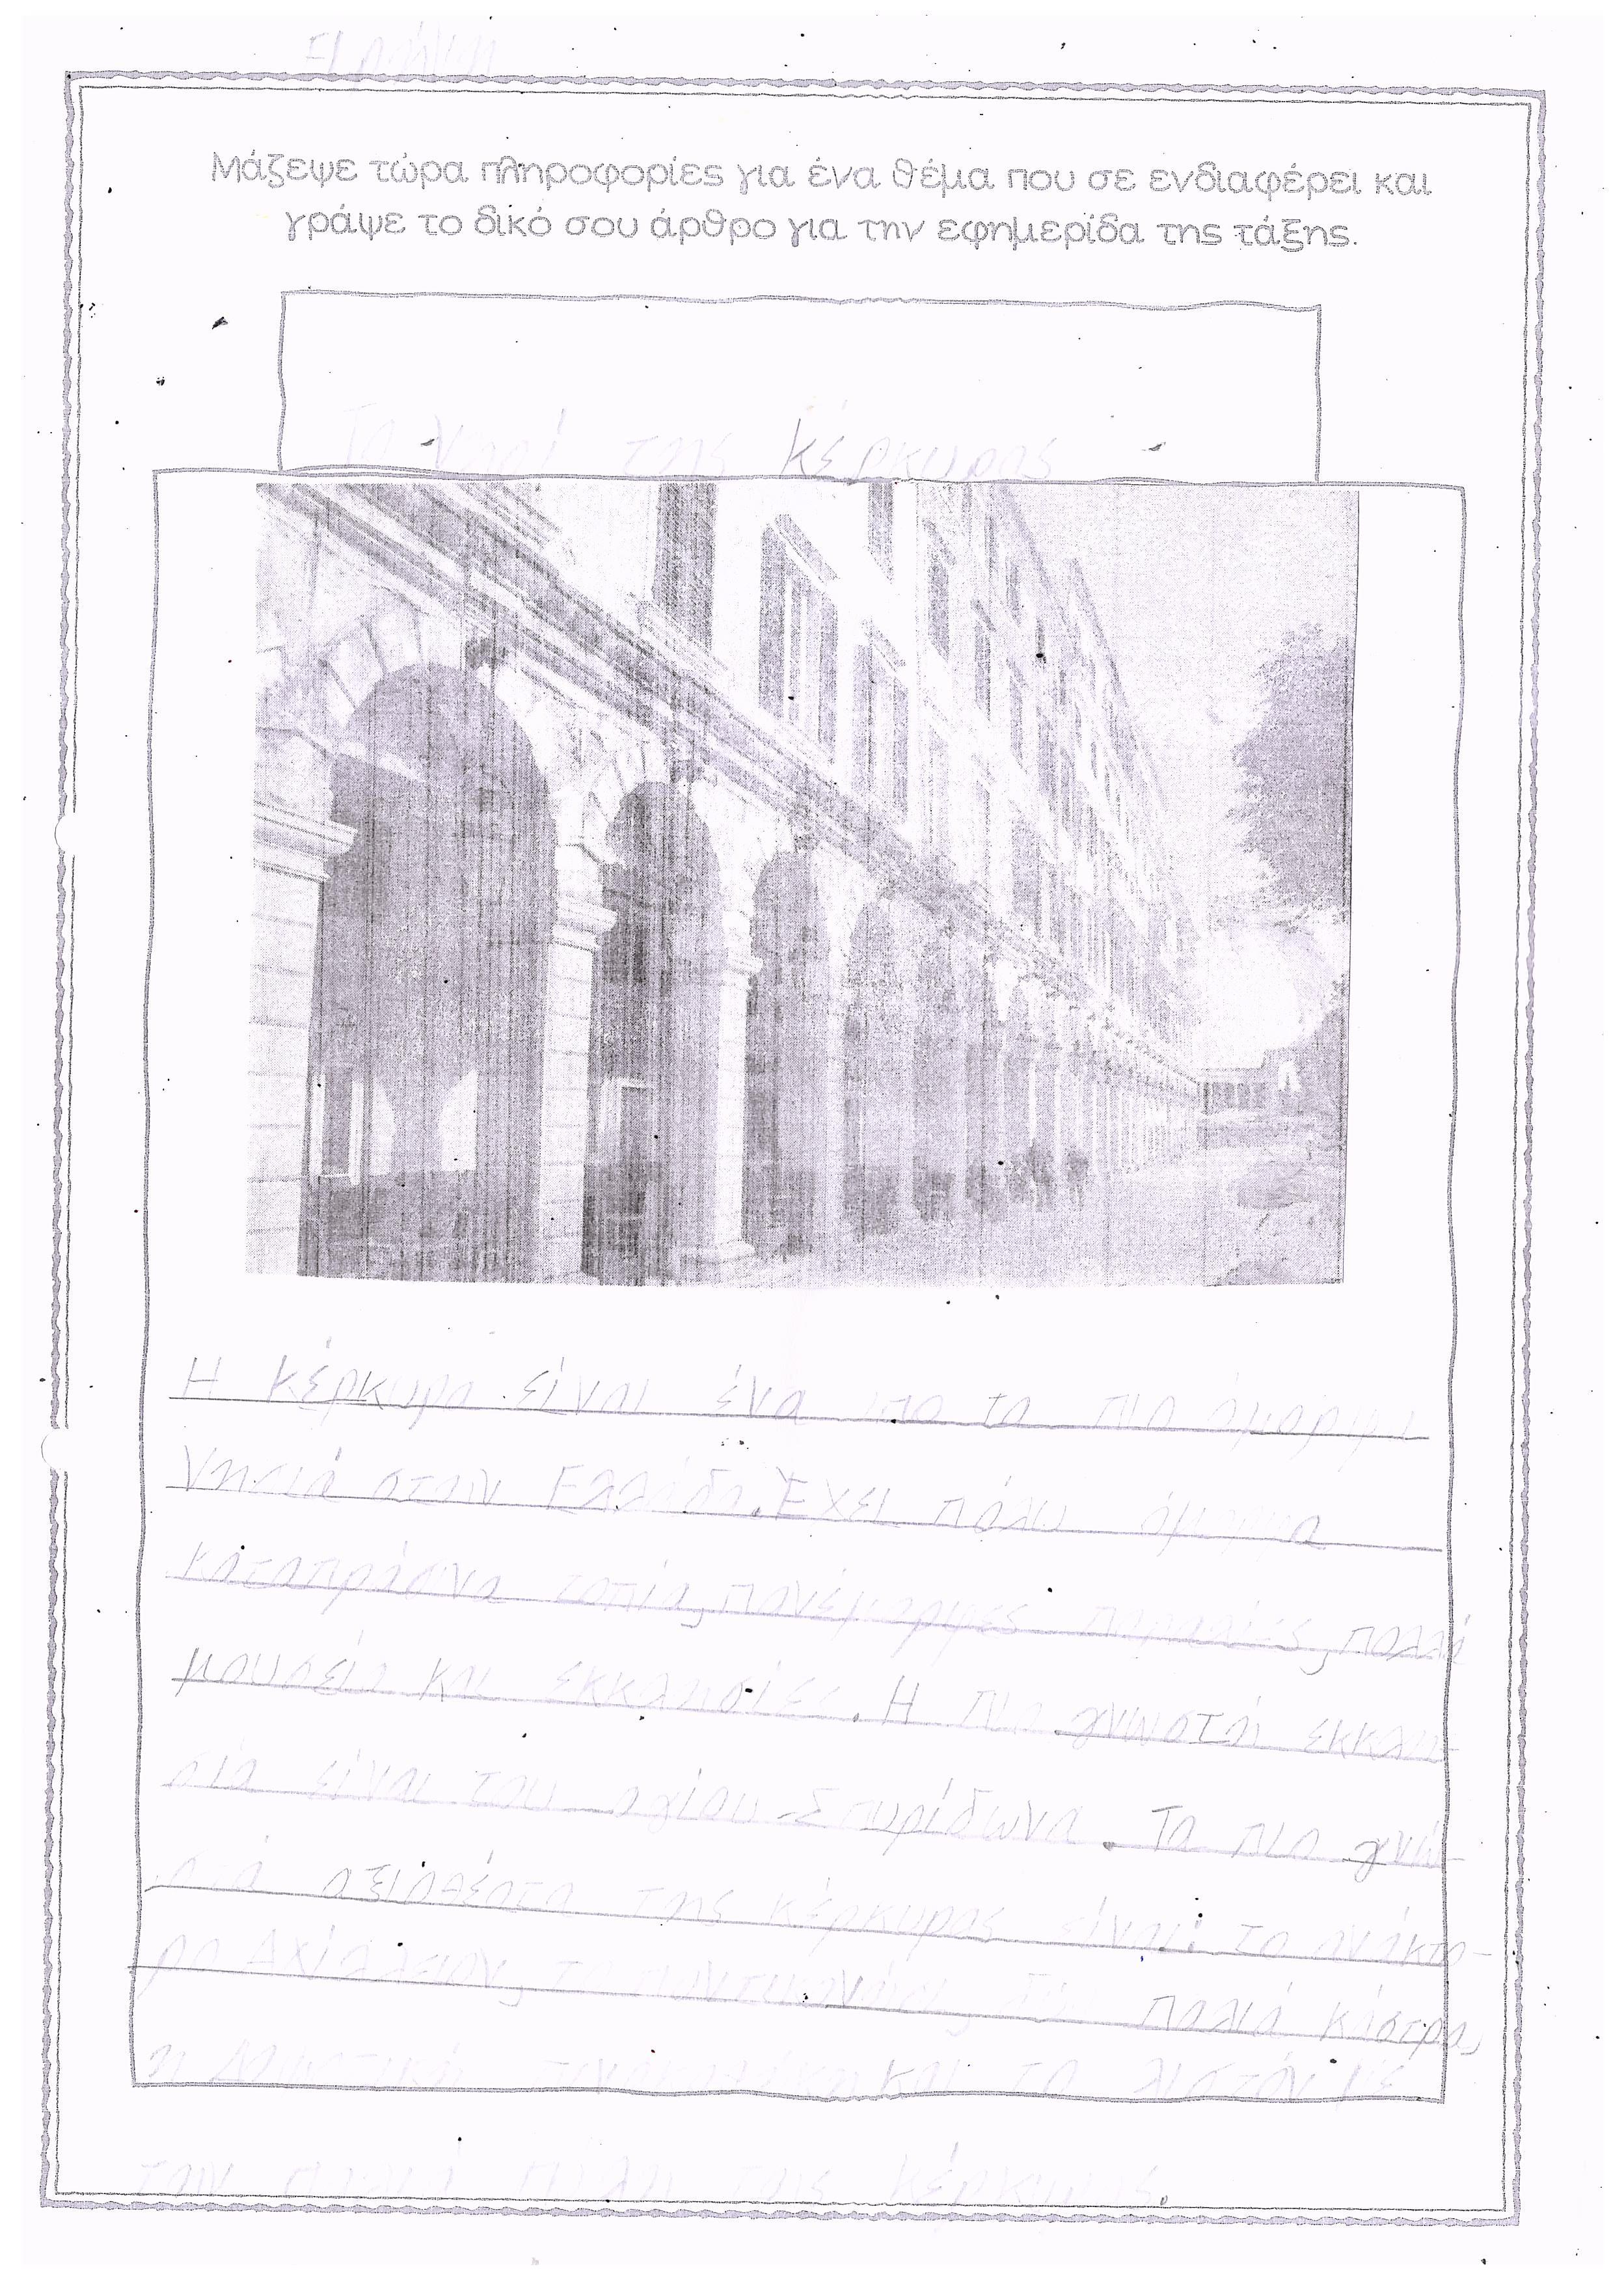 Μάζεψε τώρα πληροφορίες για ένα θέμα που σε ενδιαφέρει και
γράψε το δικό σου άρθρο για την εφημερίδα της τάξης.
Το νησί της Κέρκυρας
Η Κέρκυρα είναι ένα απο τα πιο όμορφα
νησιά στην Ελλάδα. Έχει πολυ όμορφα
καταπράσινα τοπία, πανέμορφες παραλίες, πολλά
μουσεία και εκκλησίες. Η πιο γνωστή εκκλη-
σία είναι του αγίου Σπυρίδωνα. Τα πιο γνω-
στά αξιοθέατα της Κέρκυρας είναι: το ανάκτο-
ρο Αχίλλειον, το Ποντικονήσι, το παλιό κάστρο,
η και το λιστόν
στην παλιά πόλη της Κέρκυρας.